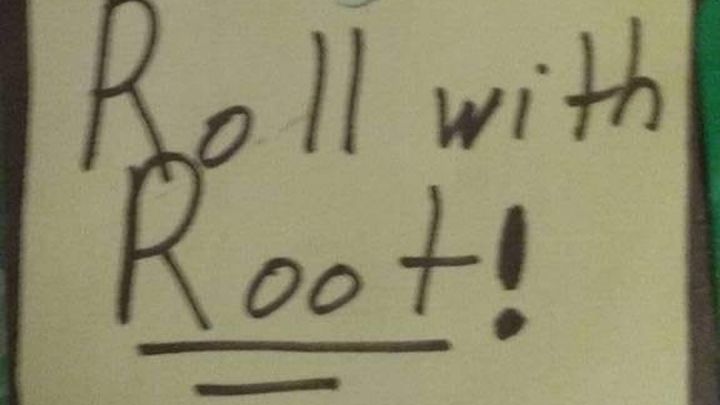 Roll with
Root!